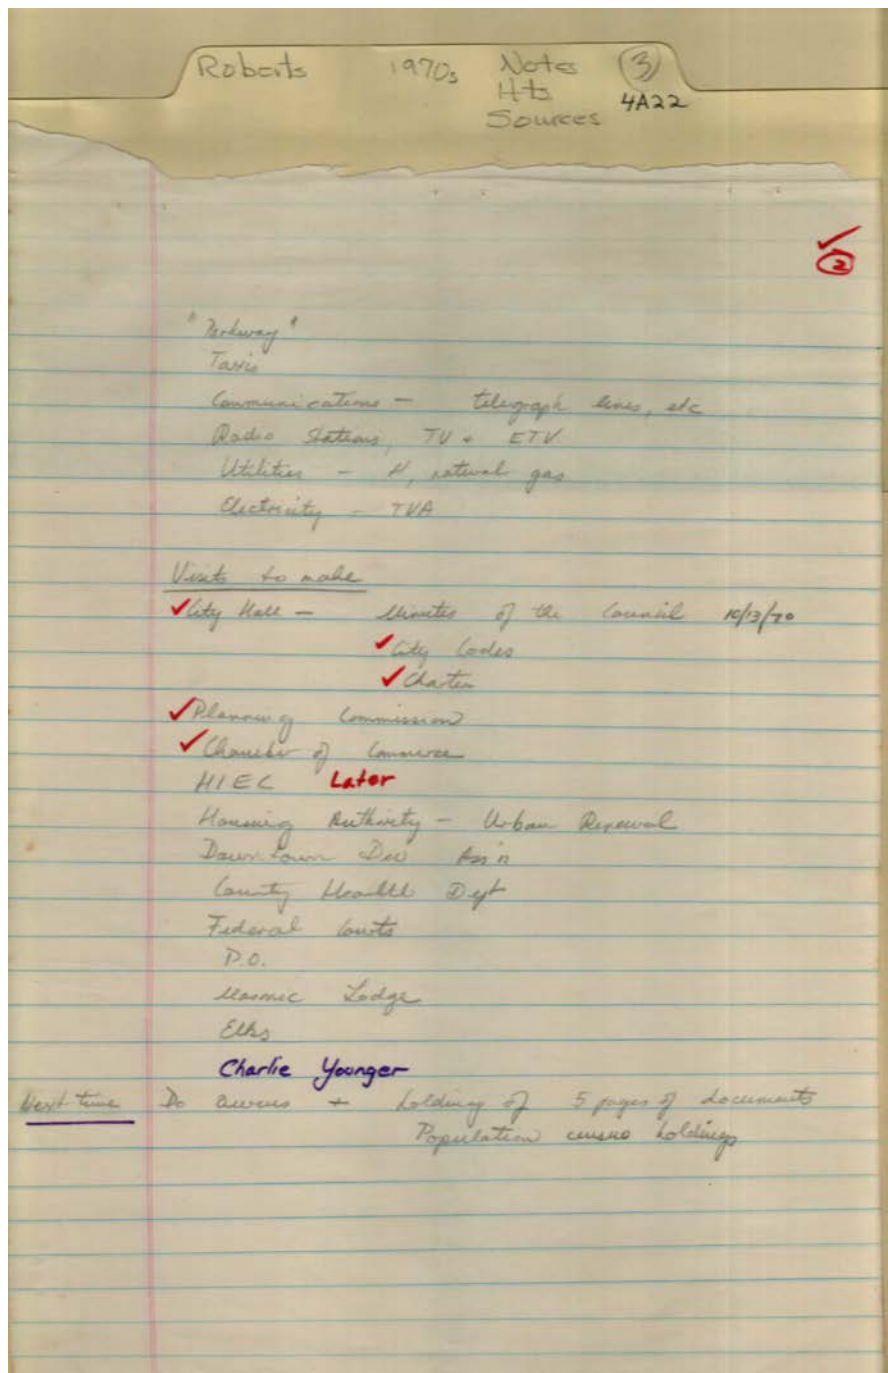 Roberts 1970s Notes 3
Hts 4A22
Sources
✓
2
"Parkway"
Taxis
Communications — telegraph lines, etc
Radio Stations, TV + ETV
Utilities — H, natural gas
Electricity — TVA
Visits to make
✓ City Hall — Minutes of the Council 10/13/70
✓ City Codes
✓ Charter
✓ Planning Commission
✓ Chamber of Commerce
HIEC Later
Housing Authority — Urban Renewal
Downtown Dev Ass'n
County Health Dept
Federal Courts
P.O.
Masonic Lodge
Elks
Charlie Younger
Next time Do + holding of 5 pages of documents
Population census holdings